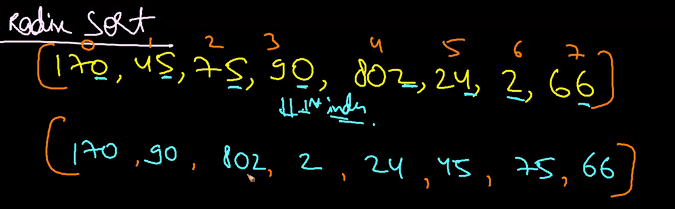 Radix Sort
0 1 2 3 4 5 6 7
[170, 45, 75, 90, 802, 24, 2, 66]
1st index.
[170, 90, 802, 2, 24, 45, 75, 66]